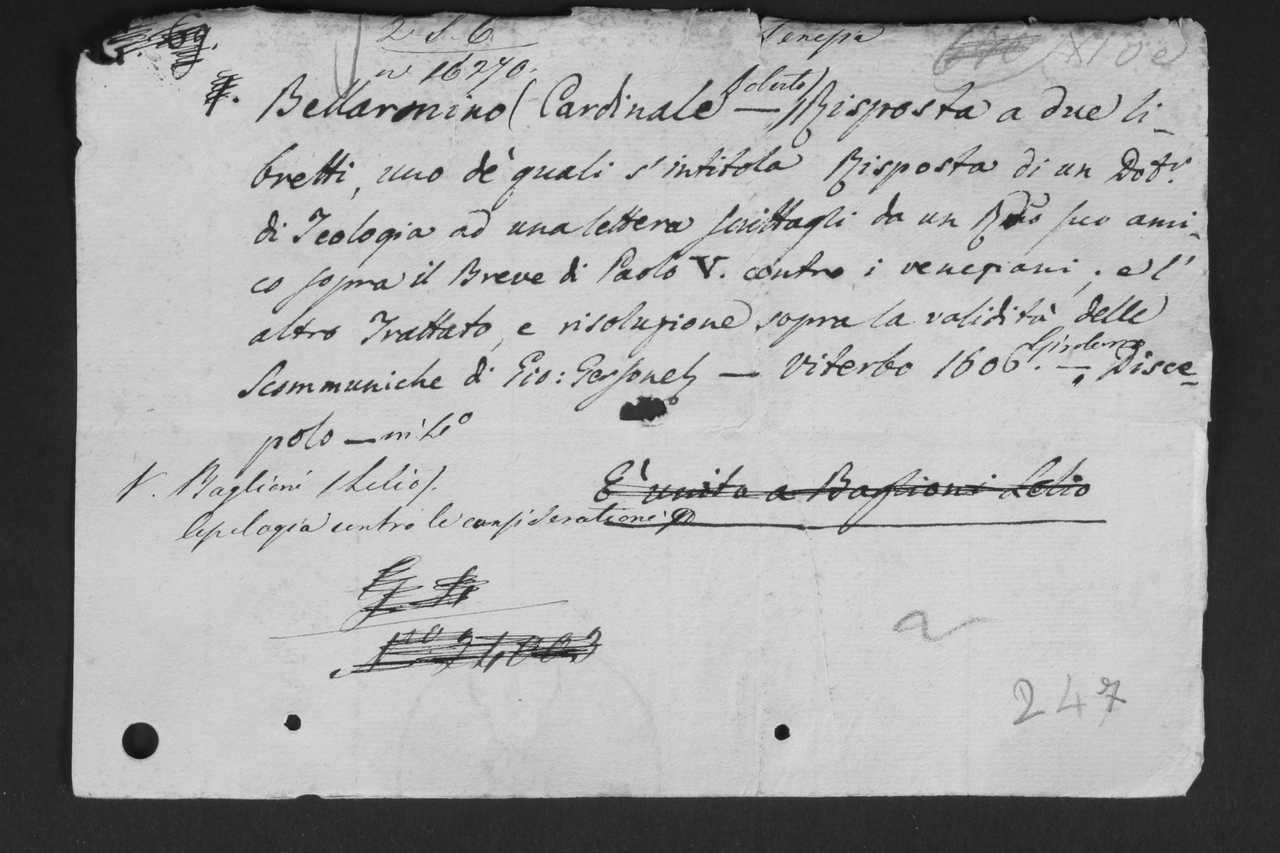 2. S. 6
n° 16270.
Bellarmino (Cardinale Roberto) — Risposta a due li-
bretti, uno de' quali s'intitola Risposta di un Dott.
di Teologia ad una lettera scrittagli da un Rdo suo ami-
co sopra il Breve di Paolo V. contro i veneziani, e l'
altro Trattato, e risoluzione sopra la validità delle
Scommuniche di Gio: Gersone — Viterbo 1606. — Girolamo Disce-
polo — in 4°
V. Baglioni (Lelio).
È unito a Baglioni Lelio
Apologia contro le considerationi
No. 31,003
247